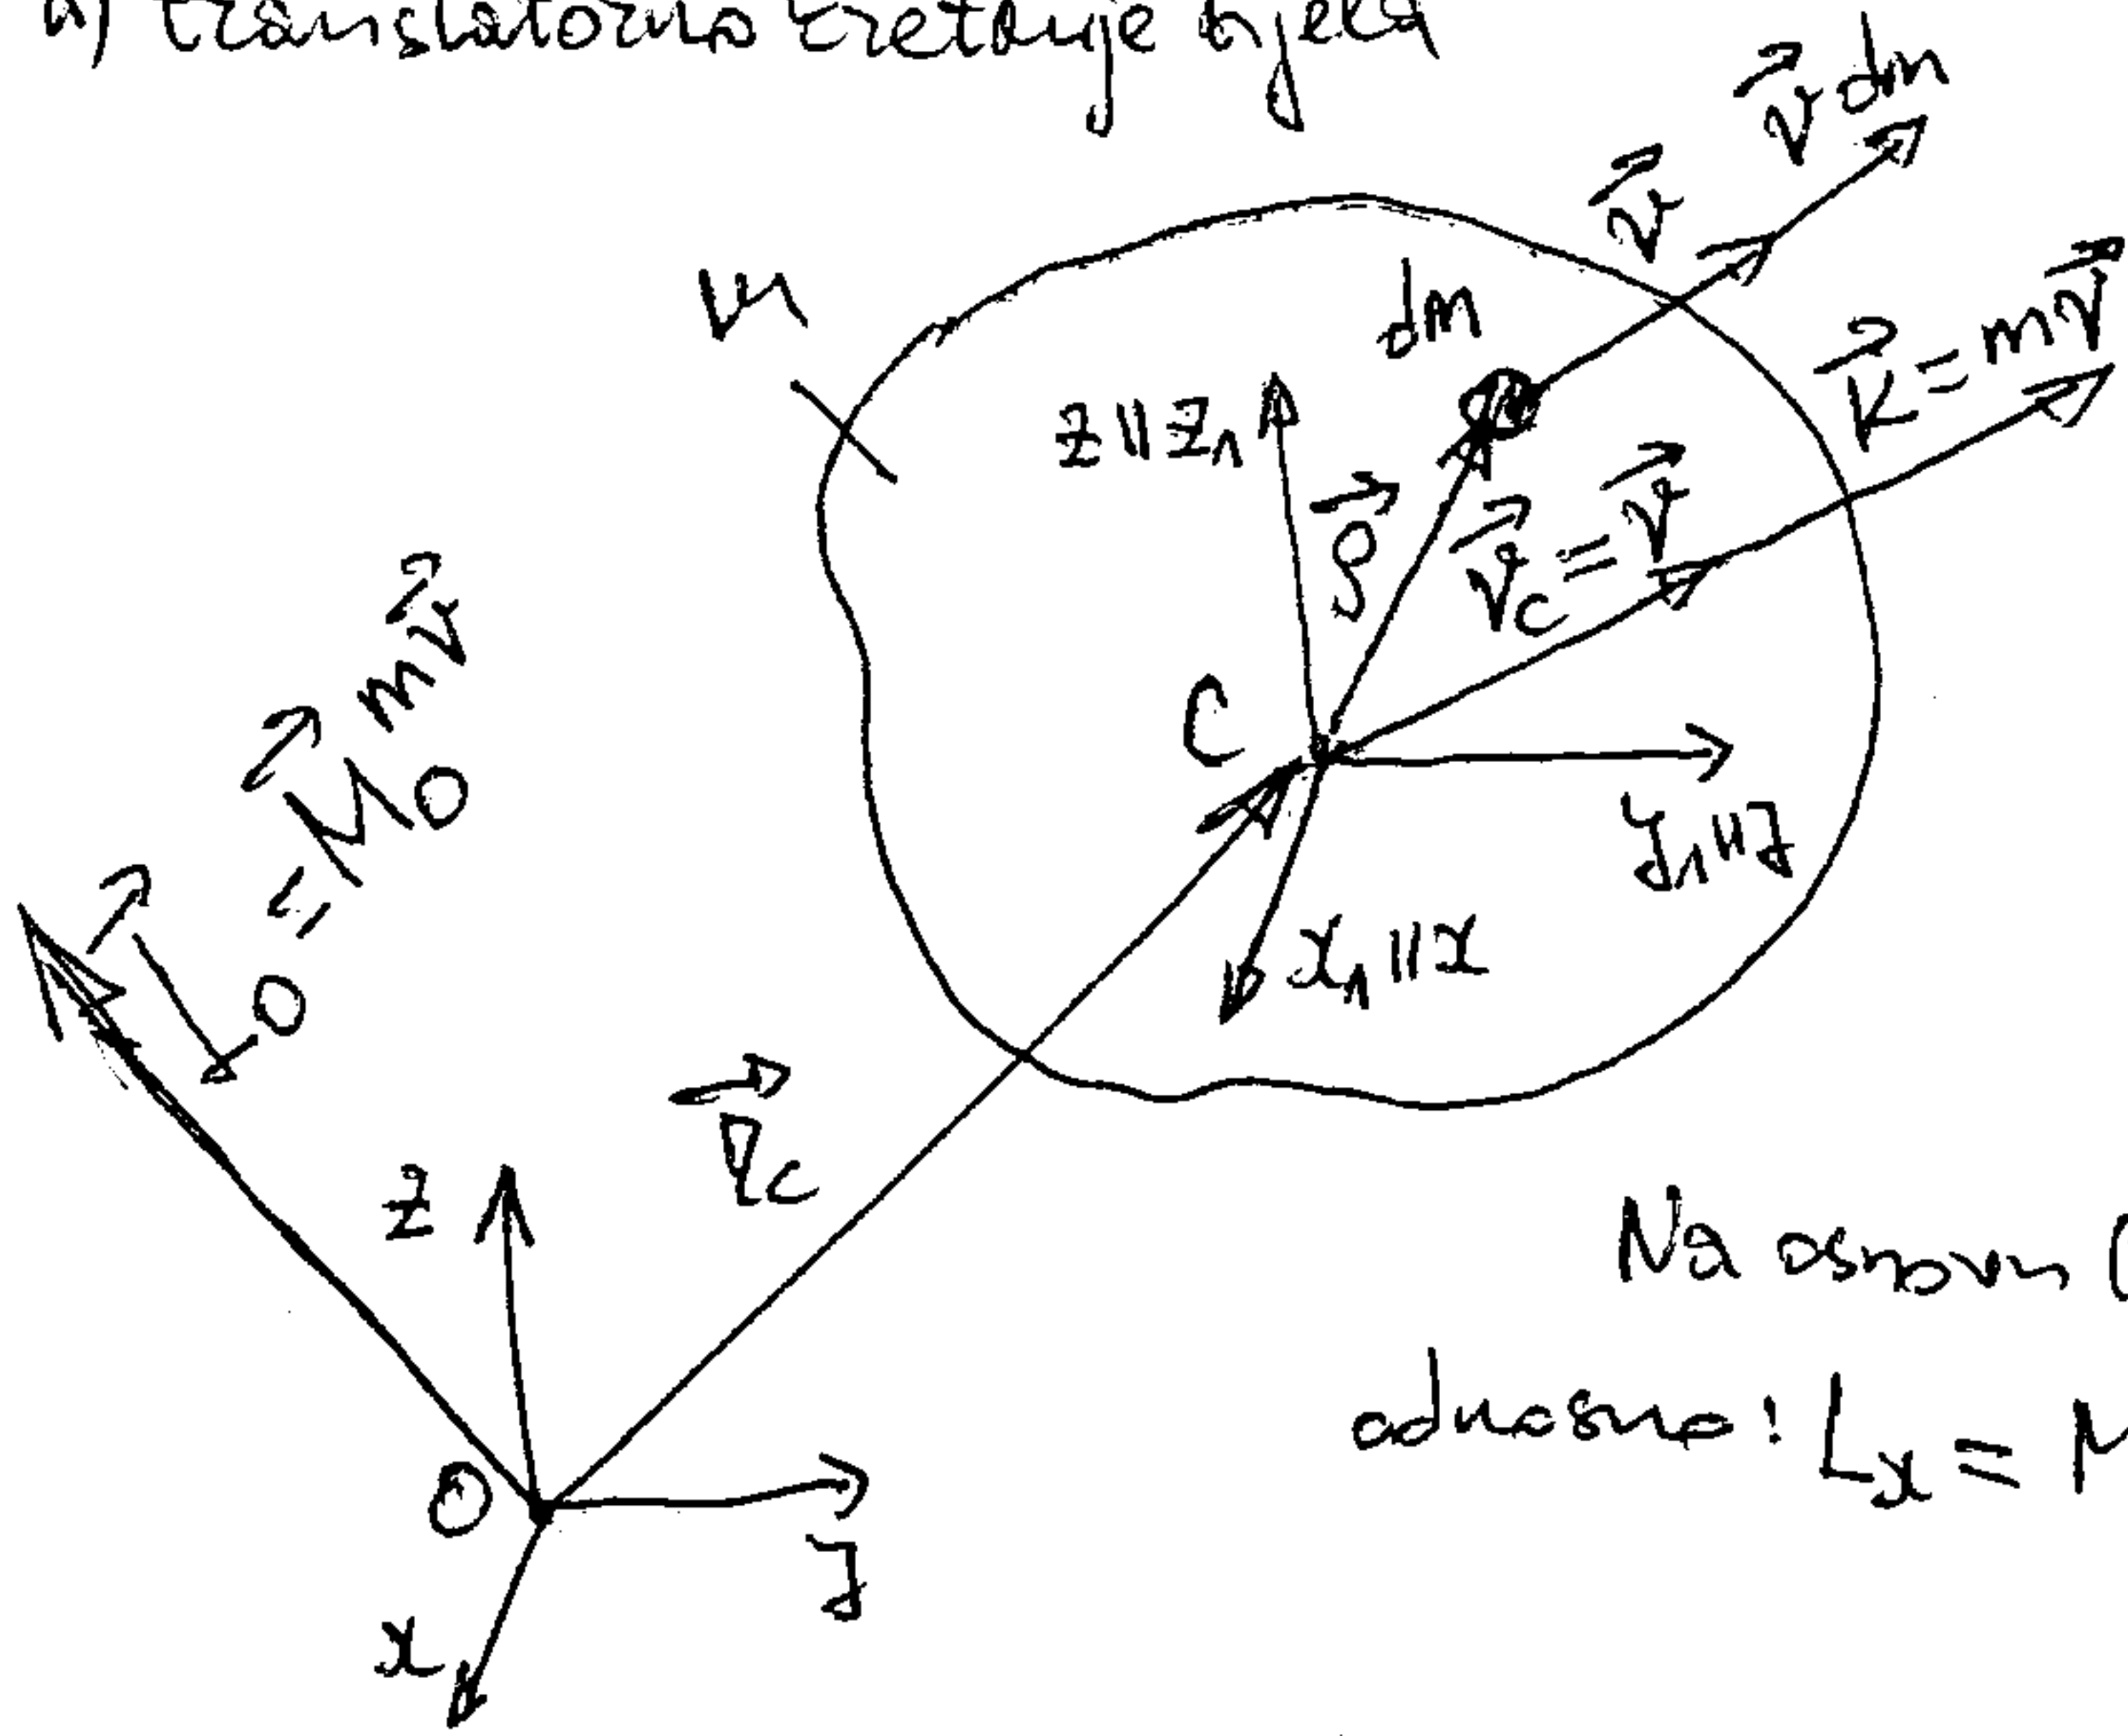 a) translatorno kretanje tjela
v⃗ dm
v⃗
K⃗ = mv⃗
dm
M
z ∥ z₁
ρ⃗
v⃗c = v⃗
C
y₁ ∥ y
x₁ ∥ x
L⃗o = M⃗o mv⃗
r⃗c
z
O
y
x
Na osnovu (
odnosno: Lx = M